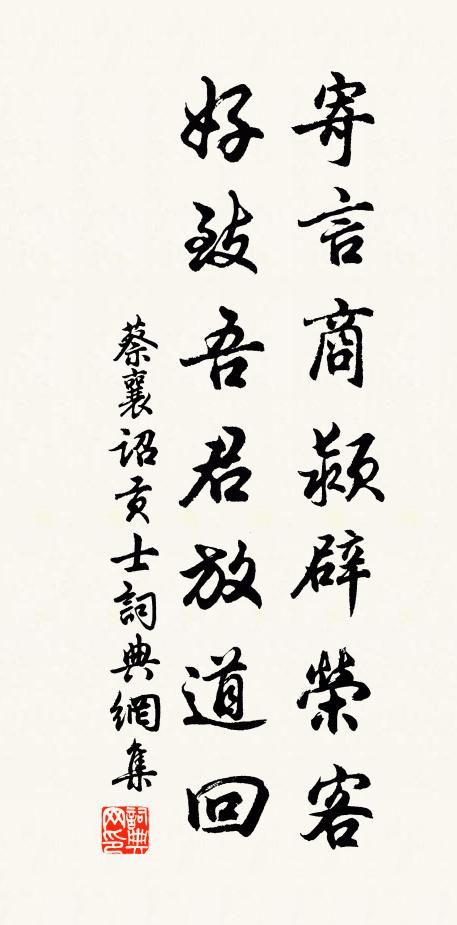 寄言商颍辟榮客
好致吾君放道回
蔡襄詔貢士詞典網集
詞典网印